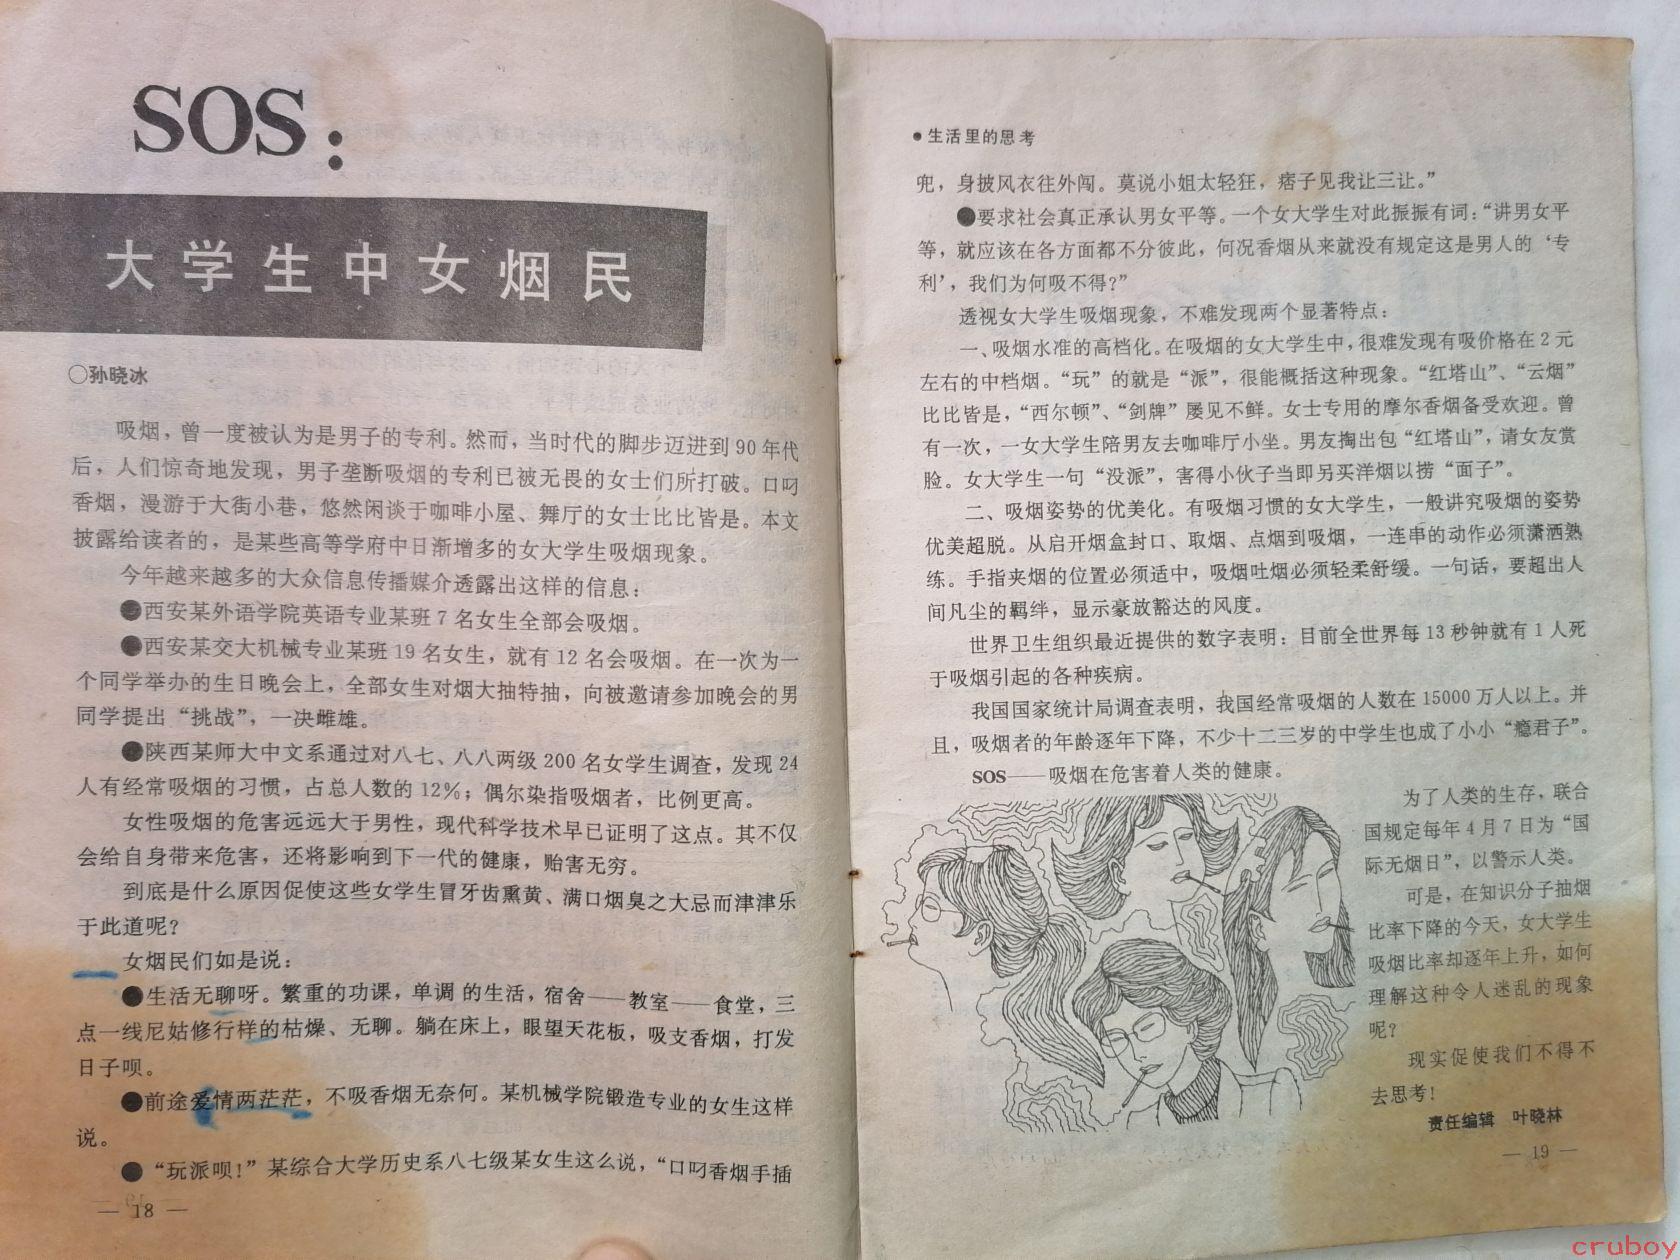 SOS:
大学生中女烟民
〇孙晓冰
吸烟，曾一度被认为是男子的专利。然而，当时代的脚步迈进到90年代
后，人们惊奇地发现，男子垄断吸烟的专利已被无畏的女士们所打破。口叼
香烟，漫游于大街小巷，悠然闲谈于咖啡小屋、舞厅的女士比比皆是。本文
披露给读者的，是某些高等学府中日渐增多的女大学生吸烟现象。
今年越来越多的大众信息传播媒介透露出这样的信息：
●西安某外语学院英语专业某班7名女生全部会吸烟。
●西安某交大机械专业某班19名女生，就有12名会吸烟。在一次为一
个同学举办的生日晚会上，全部女生对烟大抽特抽，向被邀请参加晚会的男
同学提出“挑战”，一决雌雄。
●陕西某师大中文系通过对八七、八八两级200名女学生调查，发现24
人有经常吸烟的习惯，占总人数的12％；偶尔染指吸烟者，比例更高。
女性吸烟的危害远远大于男性，现代科学技术早已证明了这点。其不仅
会给自身带来危害，还将影响到下一代的健康，贻害无穷。
到底是什么原因促使这些女学生冒牙齿熏黄、满口烟臭之大忌而津津乐
于此道呢？
女烟民们如是说：
●生活无聊呀。繁重的功课，单调的生活，宿舍——教室——食堂，三
点一线尼姑修行样的枯燥、无聊。躺在床上，眼望天花板，吸支香烟，打发
日子呗。
●前途爱情两茫茫，不吸香烟无奈何。某机械学院锻造专业的女生这样
说。
●“玩派呗！”某综合大学历史系八七级某女生这么说，“口叼香烟手插
— 18 —
●生活里的思考
兜，身披风衣往外闯。莫说小姐太轻狂，痞子见我让三让。”
●要求社会真正承认男女平等。一个女大学生对此振振有词：“讲男女平
等，就应该在各方面都不分彼此，何况香烟从来就没有规定这是男人的‘专
利’，我们为何吸不得？”
透视女大学生吸烟现象，不难发现两个显著特点：
一、吸烟水准的高档化。在吸烟的女大学生中，很难发现有吸价格在2元
左右的中档烟。“玩”的就是“派”，很能概括这种现象。“红塔山”、“云烟”
比比皆是，“西尔顿”、“剑牌”屡见不鲜。女士专用的摩尔香烟备受欢迎。曾
有一次，一女大学生陪男友去咖啡厅小坐。男友掏出包“红塔山”，请女友赏
脸。女大学生一句“没派”，害得小伙子当即另买洋烟以捞“面子”。
二、吸烟姿势的优美化。有吸烟习惯的女大学生，一般讲究吸烟的姿势
优美超脱。从启开烟盒封口、取烟、点烟到吸烟，一连串的动作必须潇洒熟
练。手指夹烟的位置必须适中，吸烟吐烟必须轻柔舒缓。一句话，要超出人
间凡尘的羁绊，显示豪放豁达的风度。
世界卫生组织最近提供的数字表明：目前全世界每13秒钟就有1人死
于吸烟引起的各种疾病。
我国国家统计局调查表明，我国经常吸烟的人数在15000万人以上。并
且，吸烟者的年龄逐年下降，不少十二三岁的中学生也成了小小“瘾君子”。
SOS——吸烟在危害着人类的健康。
为了人类的生存，联合
国规定每年4月7日为“国
际无烟日”，以警示人类。
可是，在知识分子抽烟
比率下降的今天，女大学生
吸烟比率却逐年上升，如何
理解这种令人迷乱的现象
呢？
现实促使我们不得不
去思考！
责任编辑 叶晓林
— 19 —
cruboy